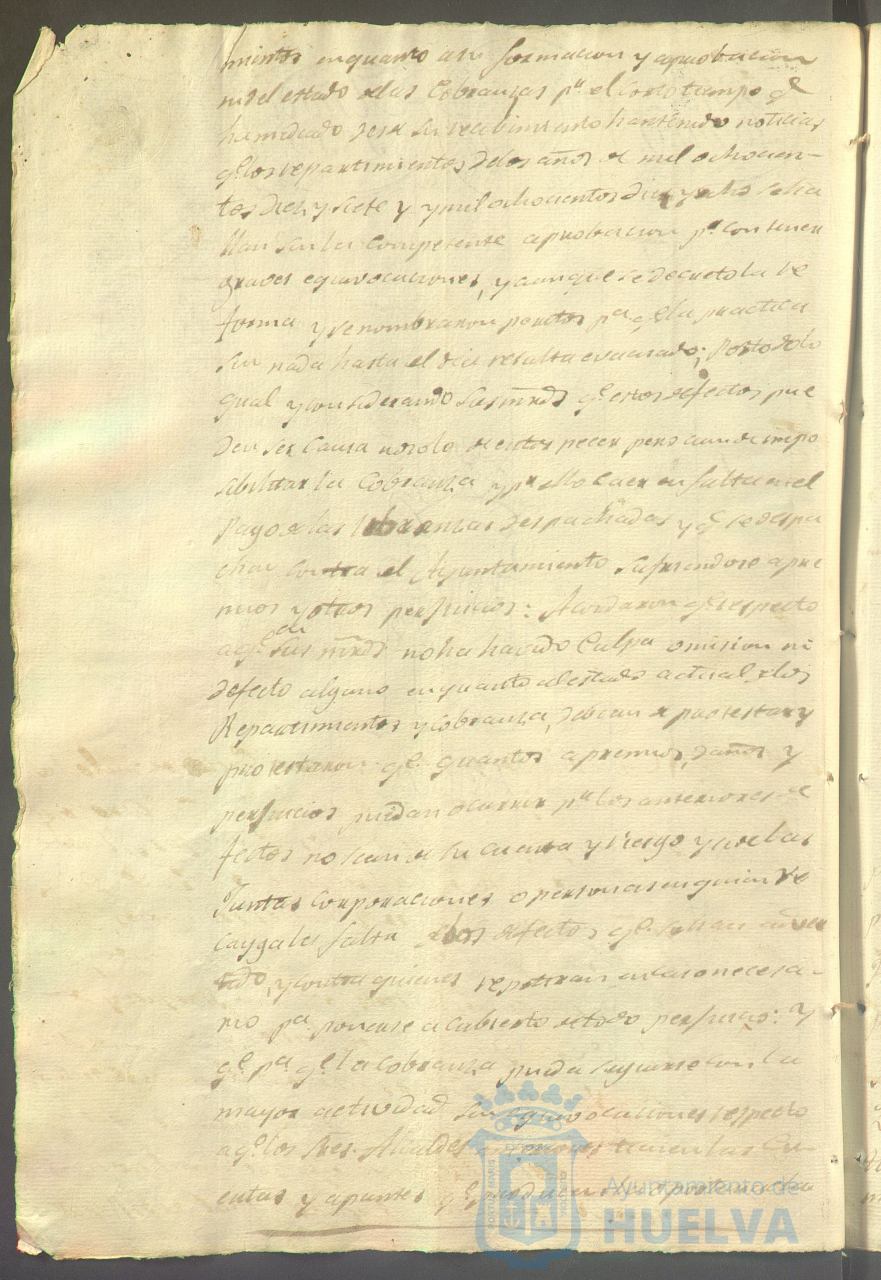 mientos en quanto a su formacion y aprobacion
ni del estado de las Cobranzas pr. el corto tiempo q.e
ha mediado desde su recibimiento han tenido noticias
q.e los repartimientos de los años de mil ochocien-
tos diez y siete y y mil ochocientos diez y ocho se ha
llan sin la competente aprobacion pr. contener
graves equivocaciones, y aunque se decreto la re
forma y se nombraron peritos pa. q.e la practica
sen nada hasta el dia resulta evacuado; Por todo lo
qual y considerando sus mrds. q.e estos defectos pue
den ser causa no solo de entorpecer pero aun de impo
sibilitar la Cobranza y pr. ello caer en falta en el
Pago de las libranzas despachadas y q.e se despa
chen contra el Ayuntamiento sufriendose apre
mios y otros perjuicios: Acordaron q.e respecto
a q.e de sus mrds. no ha havido Culpa omision ni
defecto alguno en quanto al estado actual de los
Repartimientos y Cobranza, debian de protestar y
protestaron q.e quantos apremios, daños y
perjuicios puedan ocurrir pr. los anteriores de
fectos no sean de su cuenta y riesgo y si de las
Juntas Corporaciones o personas en quienes
cayga la falta de los defectos q.e se han adver
tido, y contra quienes repetiran en caso necesa-
rio pa. ponerse a Cubierto de todo perjuicio: Y
q.e pa. q.e la Cobranza pueda seguirse con la
mayor actividad sin equivocaciones respecto
a q.e los Sres. Alcaldes anteriores tienen las Cu-
entas y apuntes q.e
Ayuntamiento de
HUELVA
PORTUS MARIS